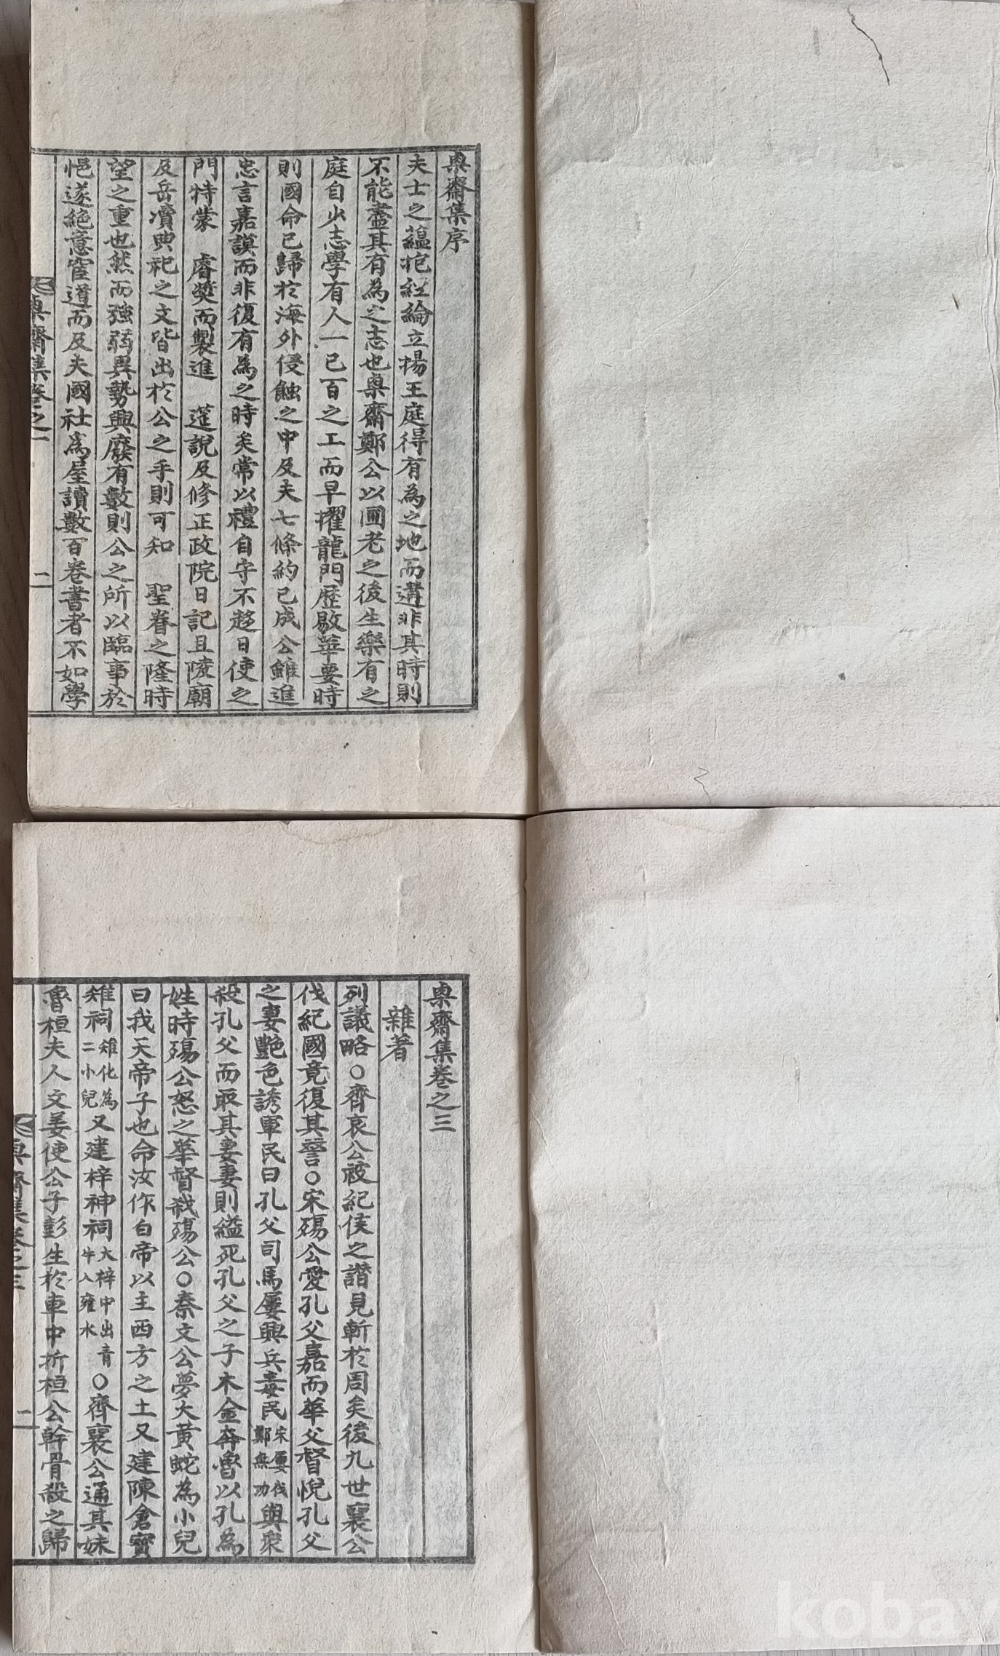 㮚齋集序
夫士之蘊抱經綸立揚王庭得有為之地而遘非其時則
不能盡其有為之志也㮚齋鄭公以圃老之後生樂有之
庭自少志學有人一己百之工而早擢龍門歷敭華要時
則國命已歸於海外侵蝕之中及夫七條約已成公雖進
忠言嘉謨而非復有為之時矣常以禮自守不趍日使之
門特蒙 睿奬而製進 筵說及修正政院日記且陵廟
及岳瀆典祀之文皆出於公之手則可知 聖眷之隆時
望之重也然而強弱異勢興廢有數則公之所以臨事於
悒遂絶意宦道而及夫國社為屋讀數百卷書者不如學
㮚齋集卷之一
一
㮚齋集卷之三
雜著
列議略○齊哀公被紀侯之譖見斬於周矣後九世襄公
伐紀國竟復其讐○宋殤公愛孔父嘉而華父督悅孔父
之妻艶色誘軍民曰孔父司馬屢興兵毒民宋屢伐鄭無功與衆
殺孔父而取其妻妻則縊死孔父之子木金奔魯以孔為
姓時殤公怒之華督弑殤公○秦文公夢大黃蛇為小兒
曰我天帝子也命汝作白帝以主西方之土又建陳倉寶
雉祠雉化為二小兒又建梓神祠大梓中出青牛入雍水○齊襄公通其妹
魯桓夫人文姜使公子彭生於車中折桓公幹骨殺之歸
㮚齋集卷之三
一
kobay